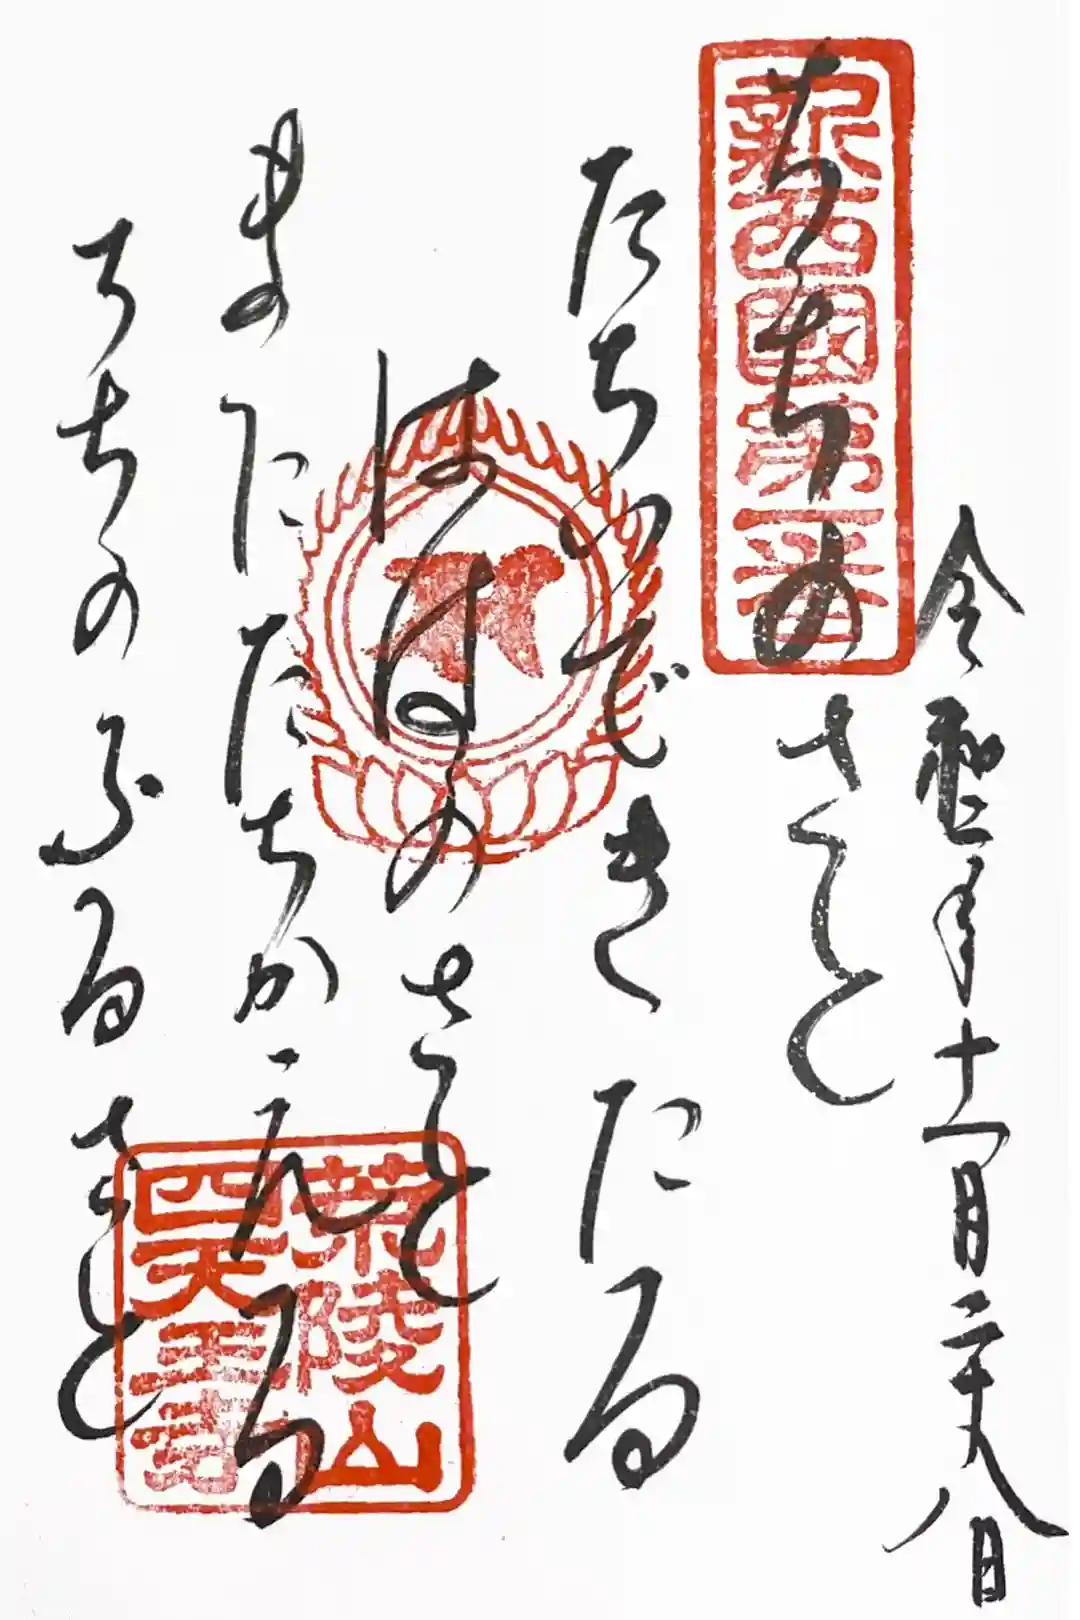 新西國第一番
令和 年十一月二十八日
ちちのさと
たちいできたる
ははのさと
またたちかえる
ちちのふるさと
荒陵山
四天王寺